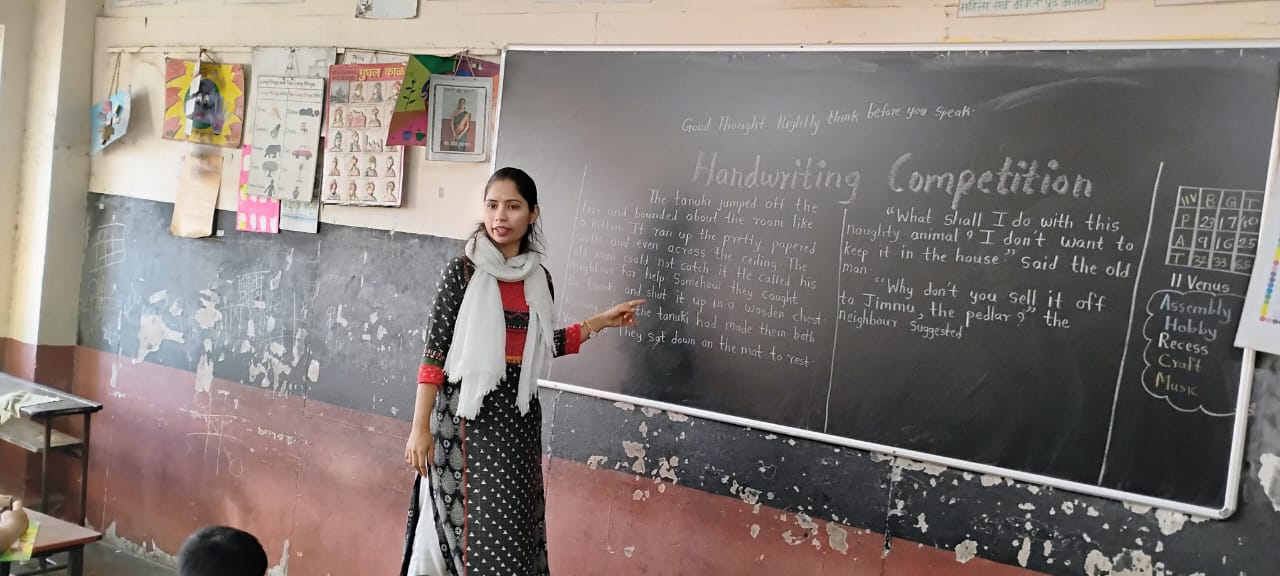 महिला एवं
मुघल काळ
Living things and Non Living things
Good Thought Rightly think before you speak.
Handwriting Competition
The tanuki jumped off the
fire and bounded about the room like
a kitten. It ran up the pretty papered
walls and even across the ceiling. The
old man could not catch it. He called his
neighbour for help. Somehow they caught
the tanuki and shut it up in a wooden chest
the tanuki had made them both
They sat down on the mat to rest.
"What shall I do with this
naughty animal? I don't want to
keep it in the house." Said the old
man.
"Why don't you sell it off
to Jimmu, the pedlar?" the
neighbour Suggested
IIV B G T
P 23 17 40
A 9 16 25
T 32 33 65
II Venus
Assembly
Hobby
Recess
Craft
Music